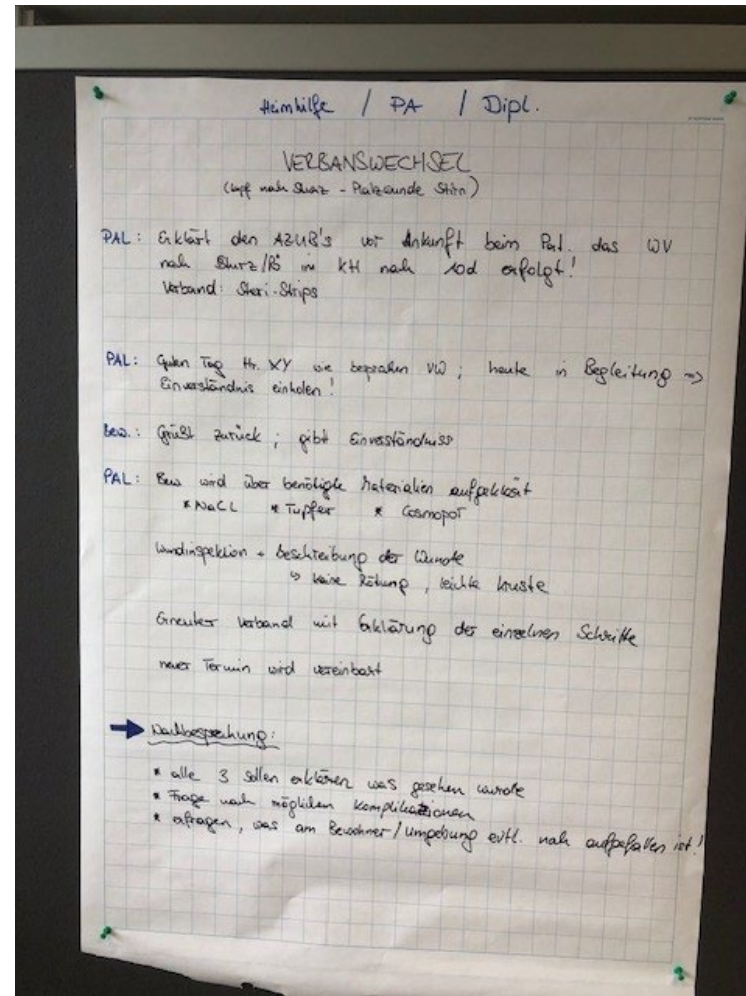 Heimhilfe / PA / Dipl.
VERBANSWECHSEL
(Kopf nach Sturz - Platzwunde Stirn)
PAL: Erklärt den AZUB's vor Ankunft beim Pat. das WV
nach Sturz/Rö im KH nach 10d erfolgt!
Verband: Steri-Strips
PAL: Guten Tag Hr. XY wie besprochen VW; heute in Begleitung =>
Einverständnis einholen!
Bew.: Grüßt zurück; gibt Einverständniss
PAL: Bew wird über benötigte Materialien aufgeklärt
* NaCL * Tupfer * Cosmopor
Wundinspektion + Beschreibung der Wunde
↳ keine Rötung, leichte Kruste
Erneuter Verband mit Erklärung der einzelnen Schritte
neuer Termin wird vereinbart
➡ Nachbesprechung:
* alle 3 sollen erklären was gesehen wurde
* Frage nach möglichen Komplikationen
* erfragen, was am Bewohner/Umgebung evtl. noch aufgefallen ist!